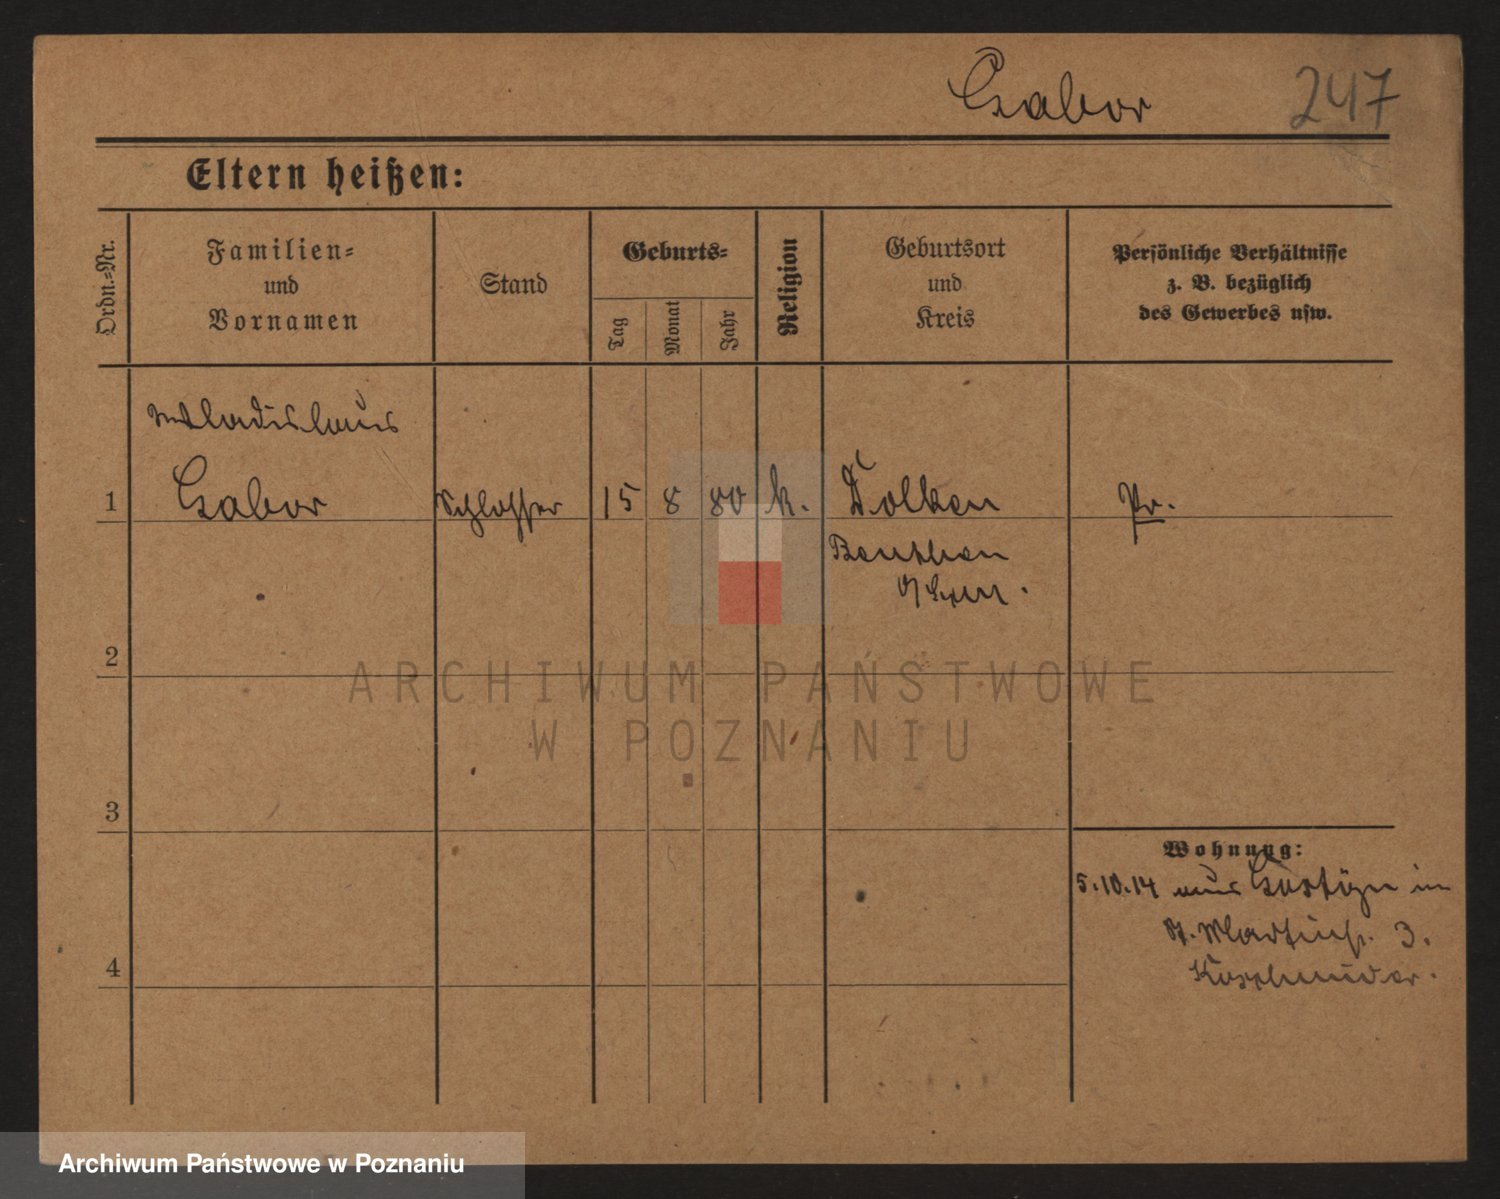 Gabor 247
Eltern heißen:
Ordn.=Nr.
Familien=
und
Vornamen
Stand
Geburts=
Tag
Monat
Jahr
Religion
Geburtsort
und
Kreis
Persönliche Verhältnisse
z. B. bezüglich
des Gewerbes usw.
Wladislaus
1 Gabor Schlosser 15 8 80 k. Dolken Pr.
Beuthen
2
3
4
Wohnung:
5.10.14 aus Gostyn in
St. Martinstr. 3.
ARCHIWUM PAŃSTWOWE
W POZNANIU
Archiwum Państwowe w Poznaniu